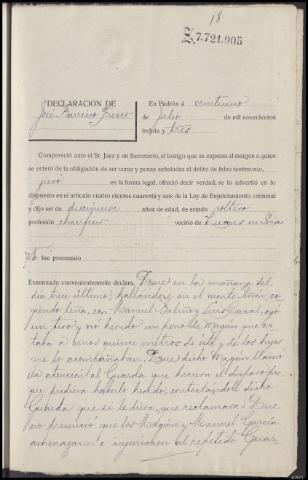 18
Z.7.721.905
DECLARACION DE
José Barreiro
En Padrón á veintiuno
de Julio de mil novecientos
treinta y tres
Compareció ante el Sr. Juez y mi Secretario, el testigo que se expresa al margen a quien
se enteró de la obligación de ser veraz y penas señaladas al delito de falso testimonio,
juró en la forma legal, ofreció decir verdad, se lo advertió en lo
dispuesto en el artículo cuatro cientos cuarenta y seis de la Ley de Enjuiciamiento criminal
y dijo ser de diecinueve años de edad, de estado soltero
profesión vecino de
No fué procesado
Examinado convenientemente declara. Que en la mañana del
día trece último, hallándose en el monte co-
giendo leña, con Manuel Batiño y Luis Casal, oyó
un tiro y vió herido un perro de Magán que es-
taba a unos quince metros de este y de los hijos
que lo acompañaban. Que dicho Magán llamó
la atención al Guarda que hiciera el disparo por-
que pudiera haberlo herido, contestándole dicho
Guarda que si le diera, que reclamara. Que
no presenció que los Magán y Manuel García
amenazaran e injuriasen al repetido Guar-